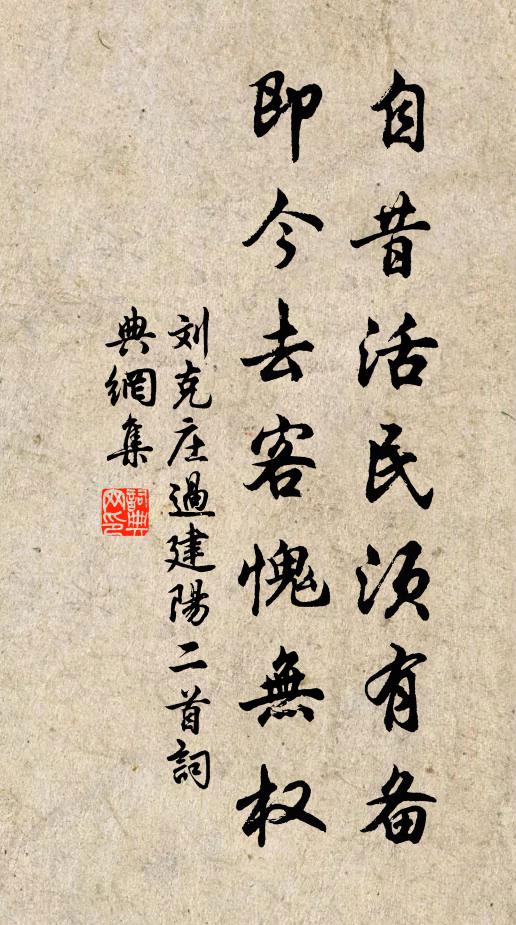 自昔活民须有备
即今去客愧無权
刘克庄過建陽二首詞
典網集
詞典网印